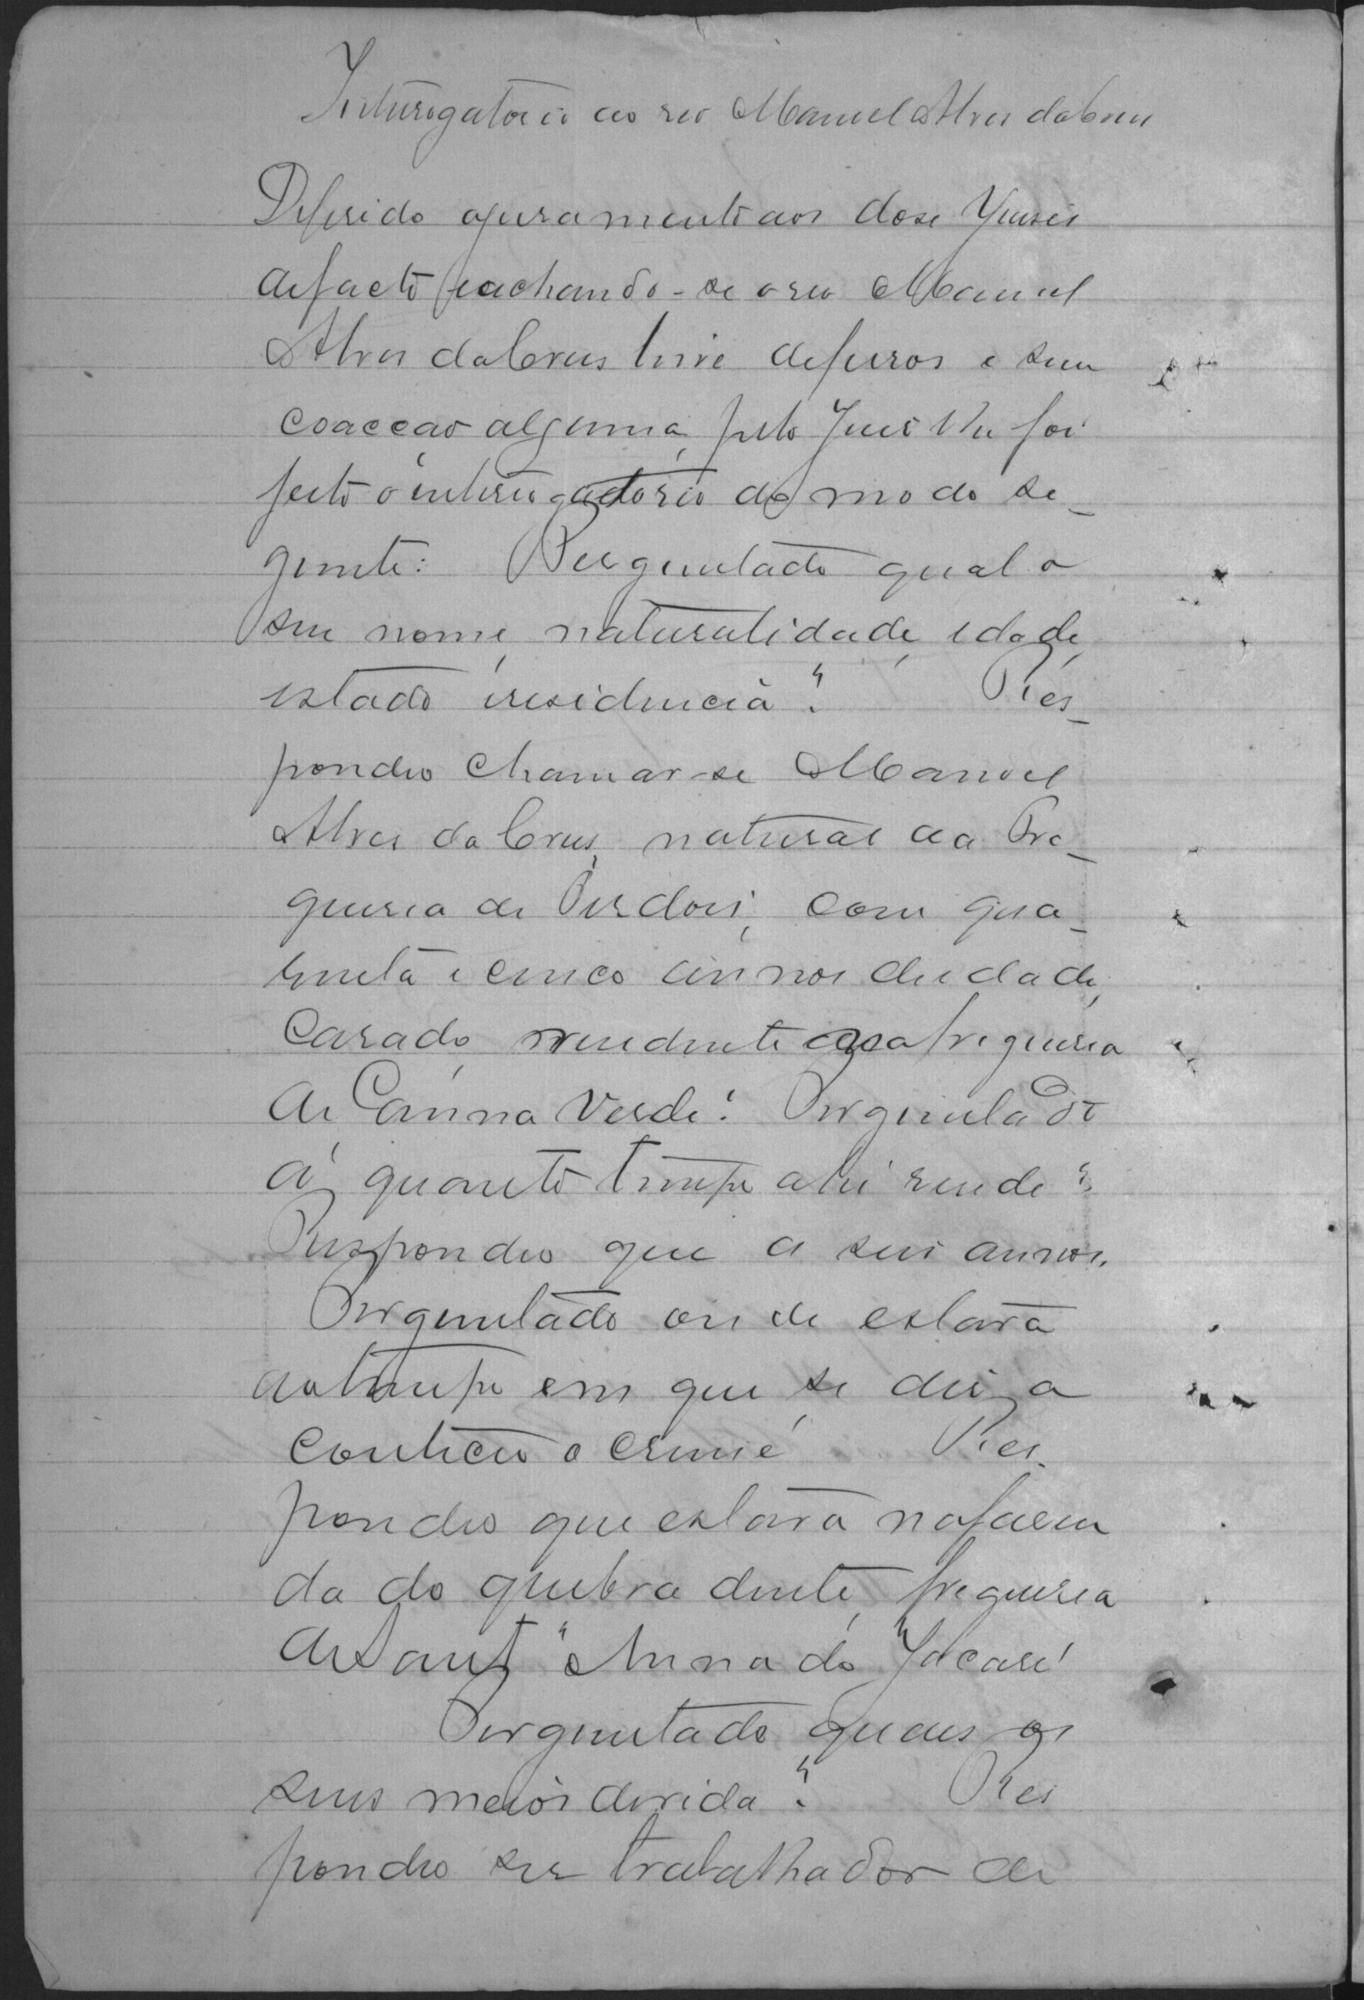 Interrogatorio ao reo Manuel Alves da Crus
Deferido o juramento aos dose Juises
de facto e achando-se o reo Manuel
Alves da Crus livre de ferros e sem
coacção alguma, pelo Juis foi
feito o interrogatorio do modo se-
guinte: Perguntado qual o
seu nome, naturalidade, edade,
estado e residencia? Res-
pondeo chamar-se Manoel
Alves da Crus, natural da Fre-
guesia de Perdoes, com qua-
renta e cinco annos de edade,
Casado, residente na freguesia
de Canna Verde. Perguntado
á quanto tempo ahi reside?
Respondeo que a seis annos.
Perguntado onde estava
ao tempo em que se diz a
conteceo o crime Res-
pondeo que estava na fasen
da do quebra dente, freguesia
de Sant'Anna do Jacaré
Perguntado quaes os
seus meios de vida? Res
pondeo ser trabalhador de